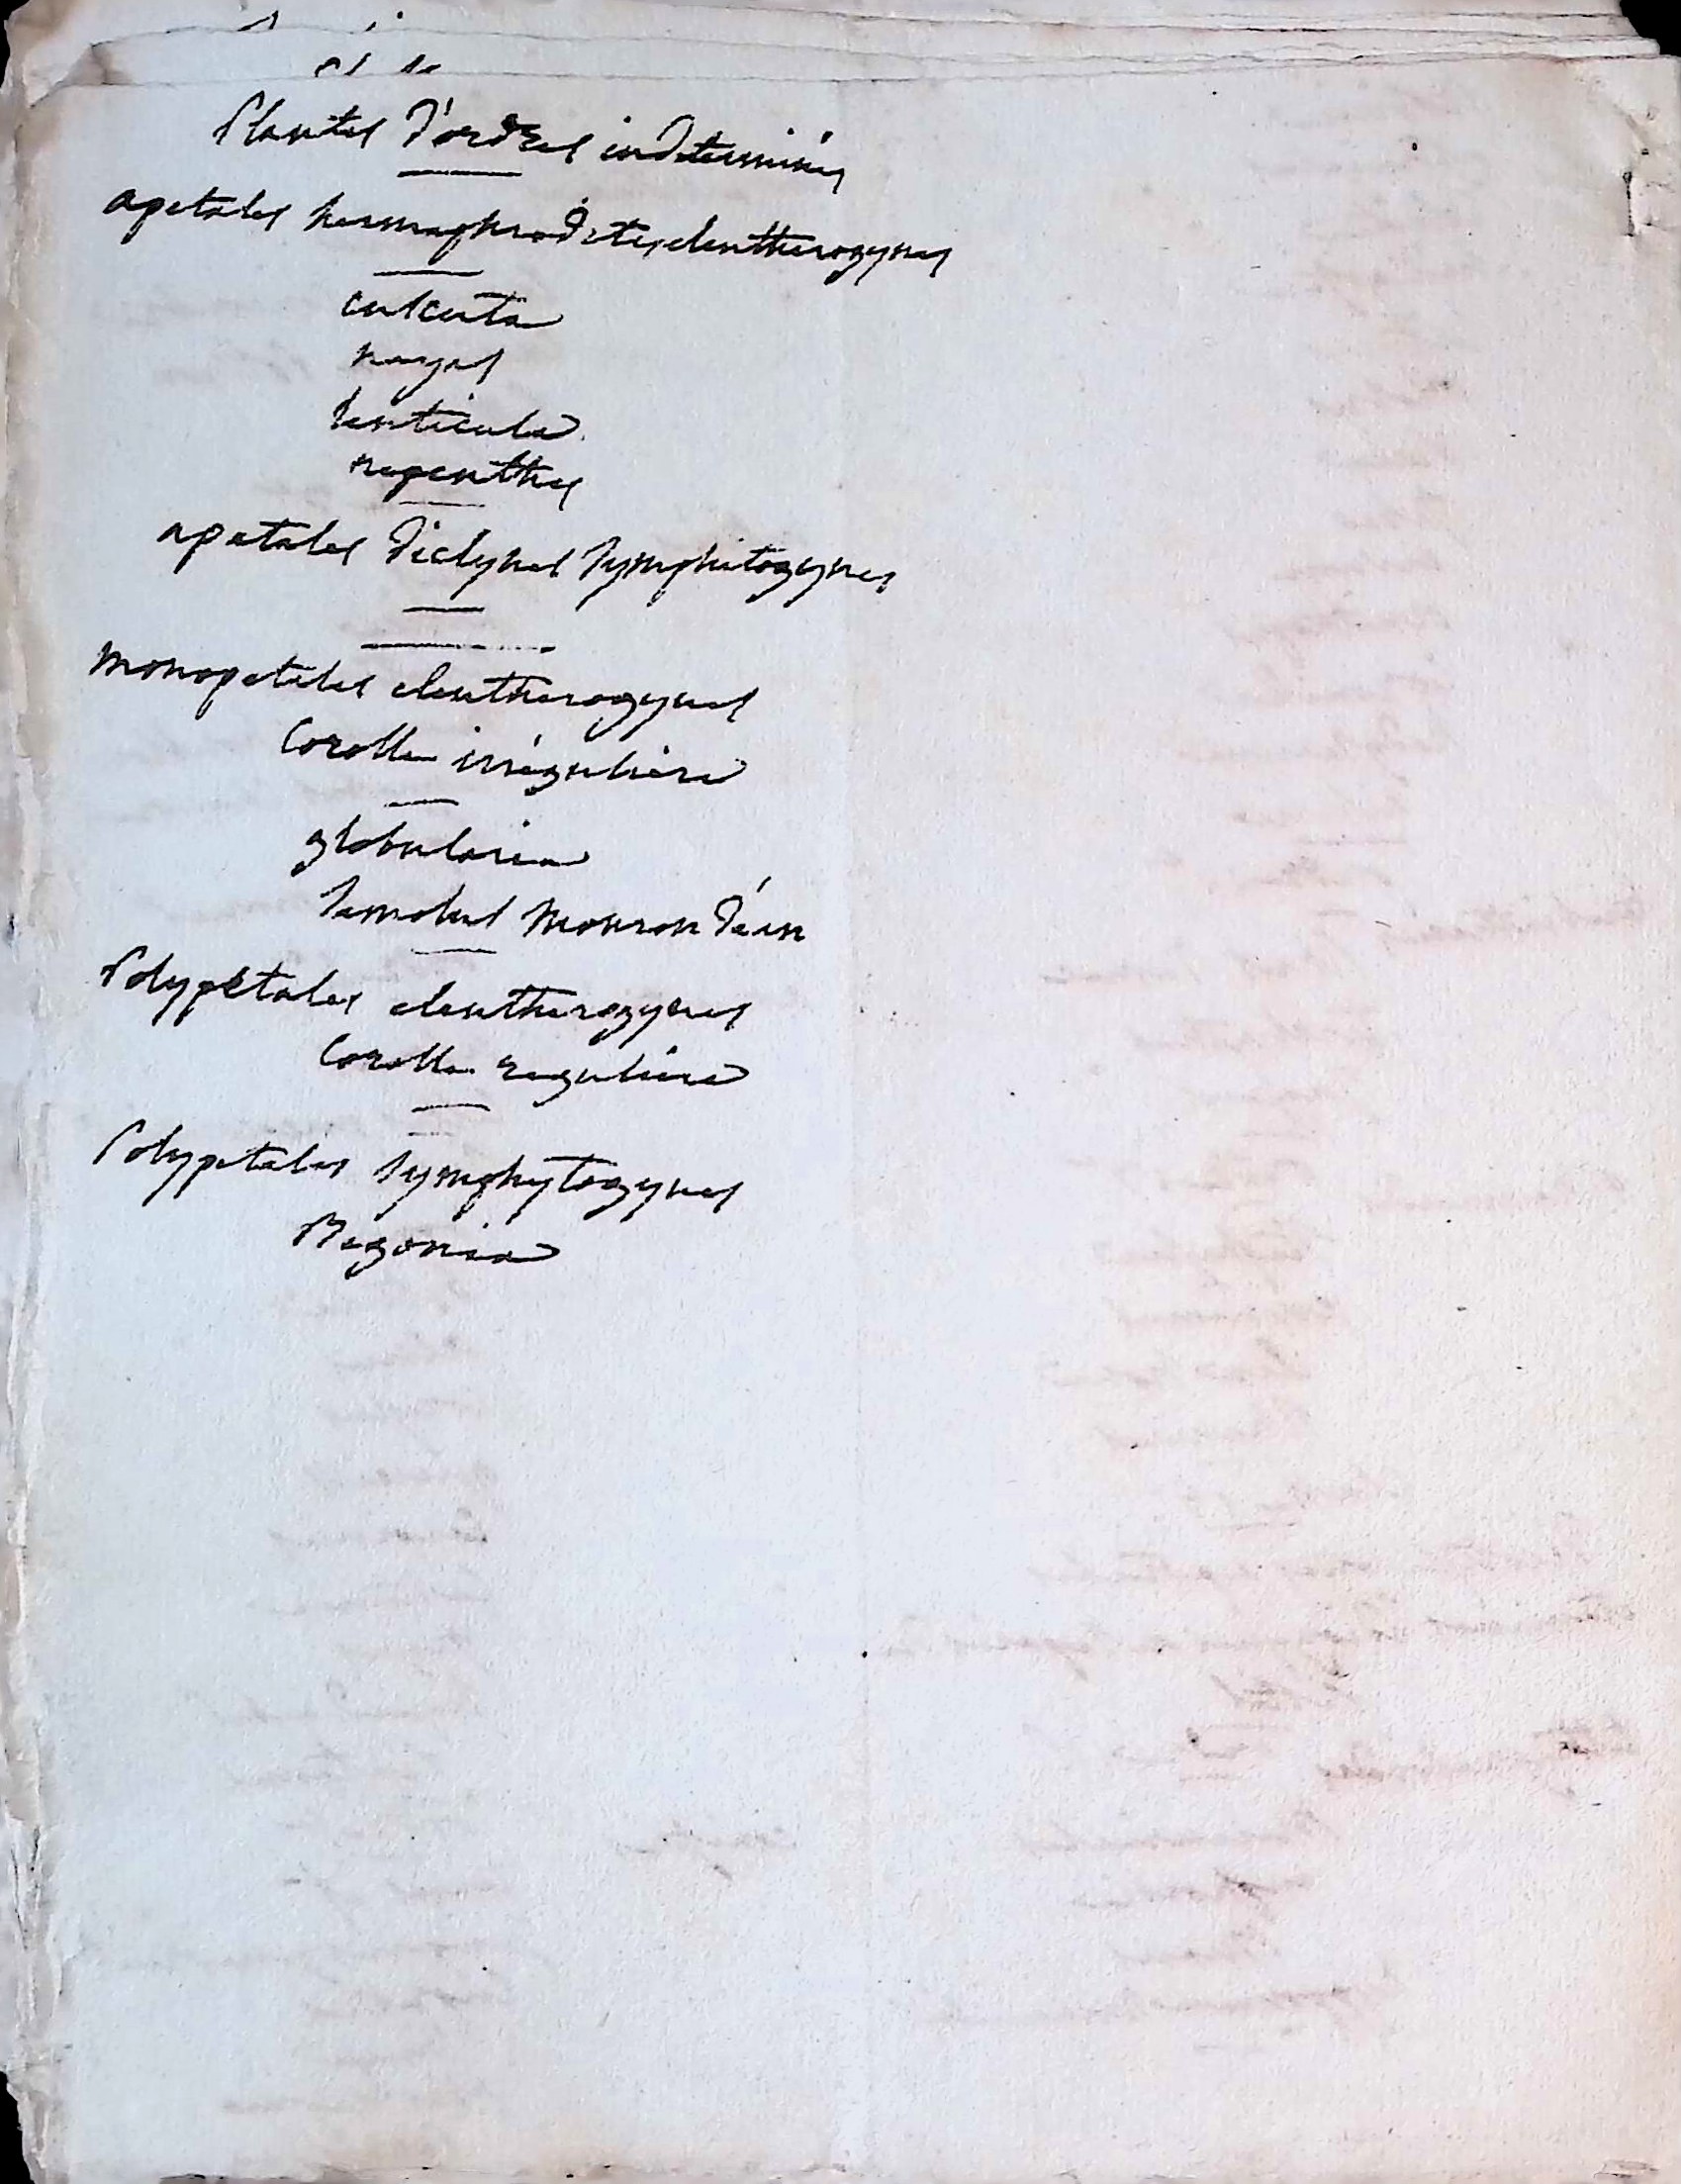 Plantes d'ordres indeterminés
apetales hermaphrodites eleutherogynes
cuscuta
nayas
lenticula
nepenthes
apetales diclynes symphitogynes
monopetales eleutherogynes
Corolle irréguliere
globularia
samolus mouron d'eau
Polypétales eleutherogynes
Corolle reguliere
Polypetales symphytogynes
Begonia